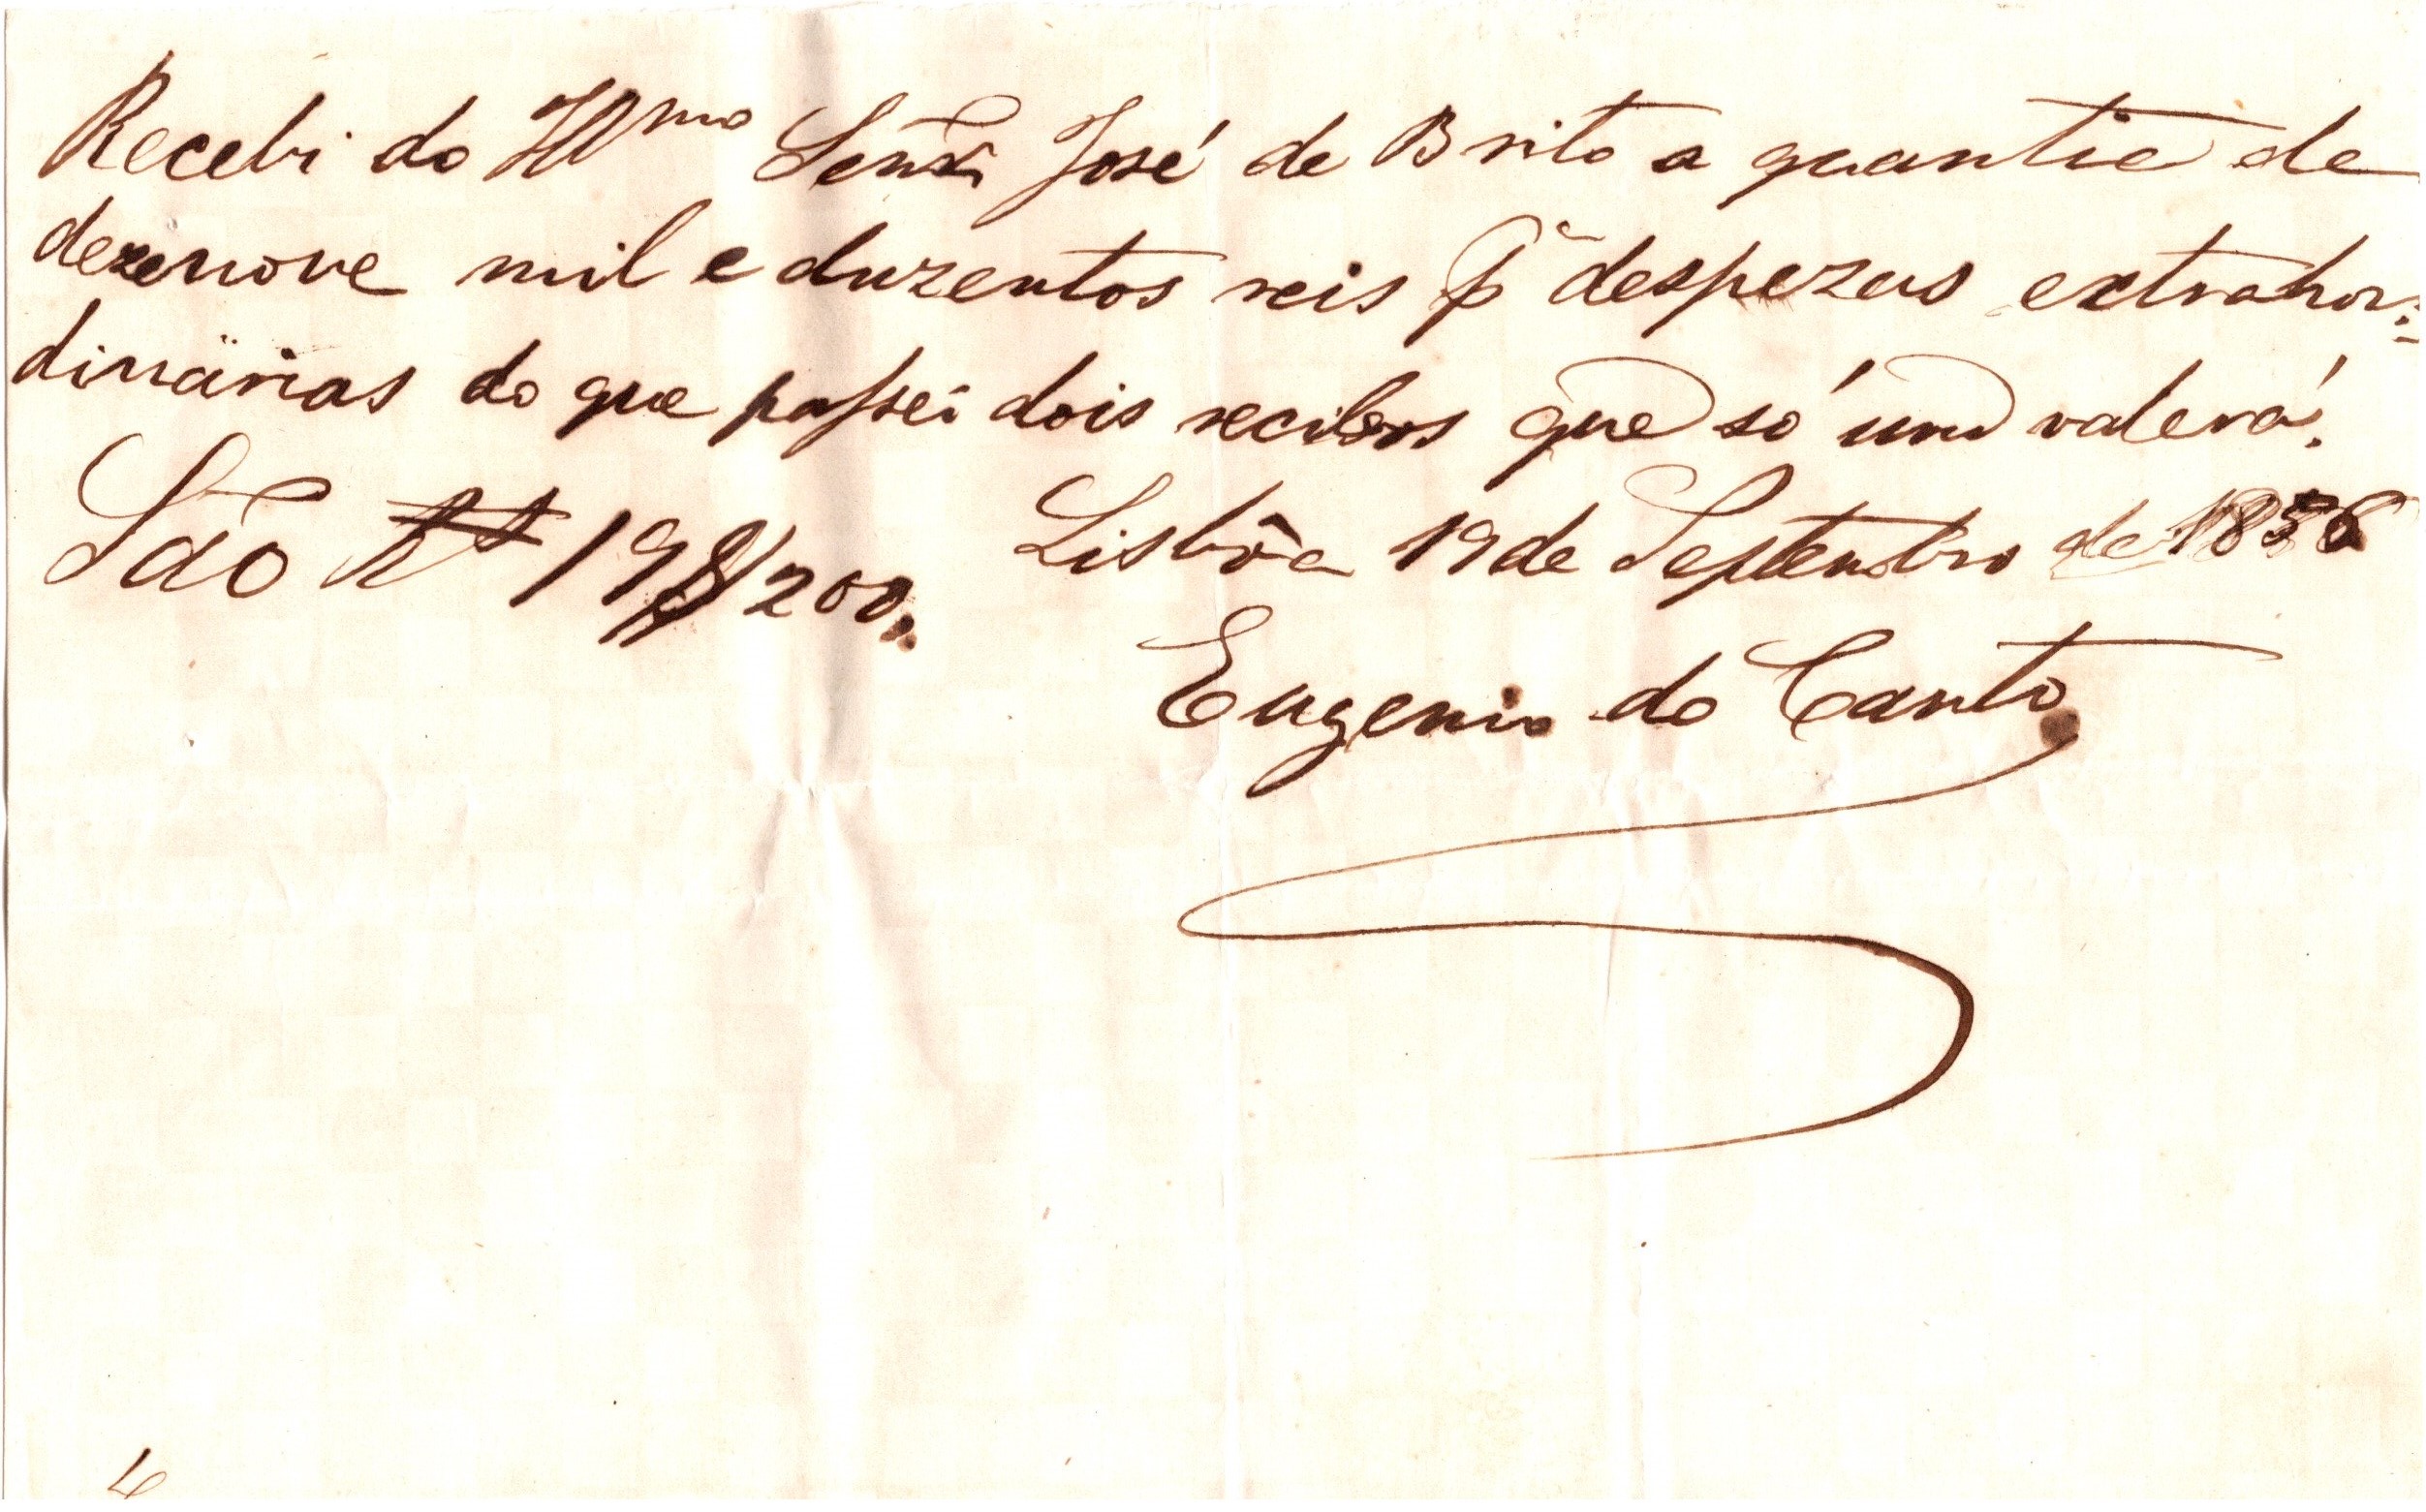 Recebi do Illmo Senr José de Brito a quantia de
dezenove mil e duzentos reis pa despezas extrahor=
dinárias do que passei dois recibos que só um valerá.
São Rs 19$200. Lisbôa 19 de Septembro de 1856
Eugenio do Canto